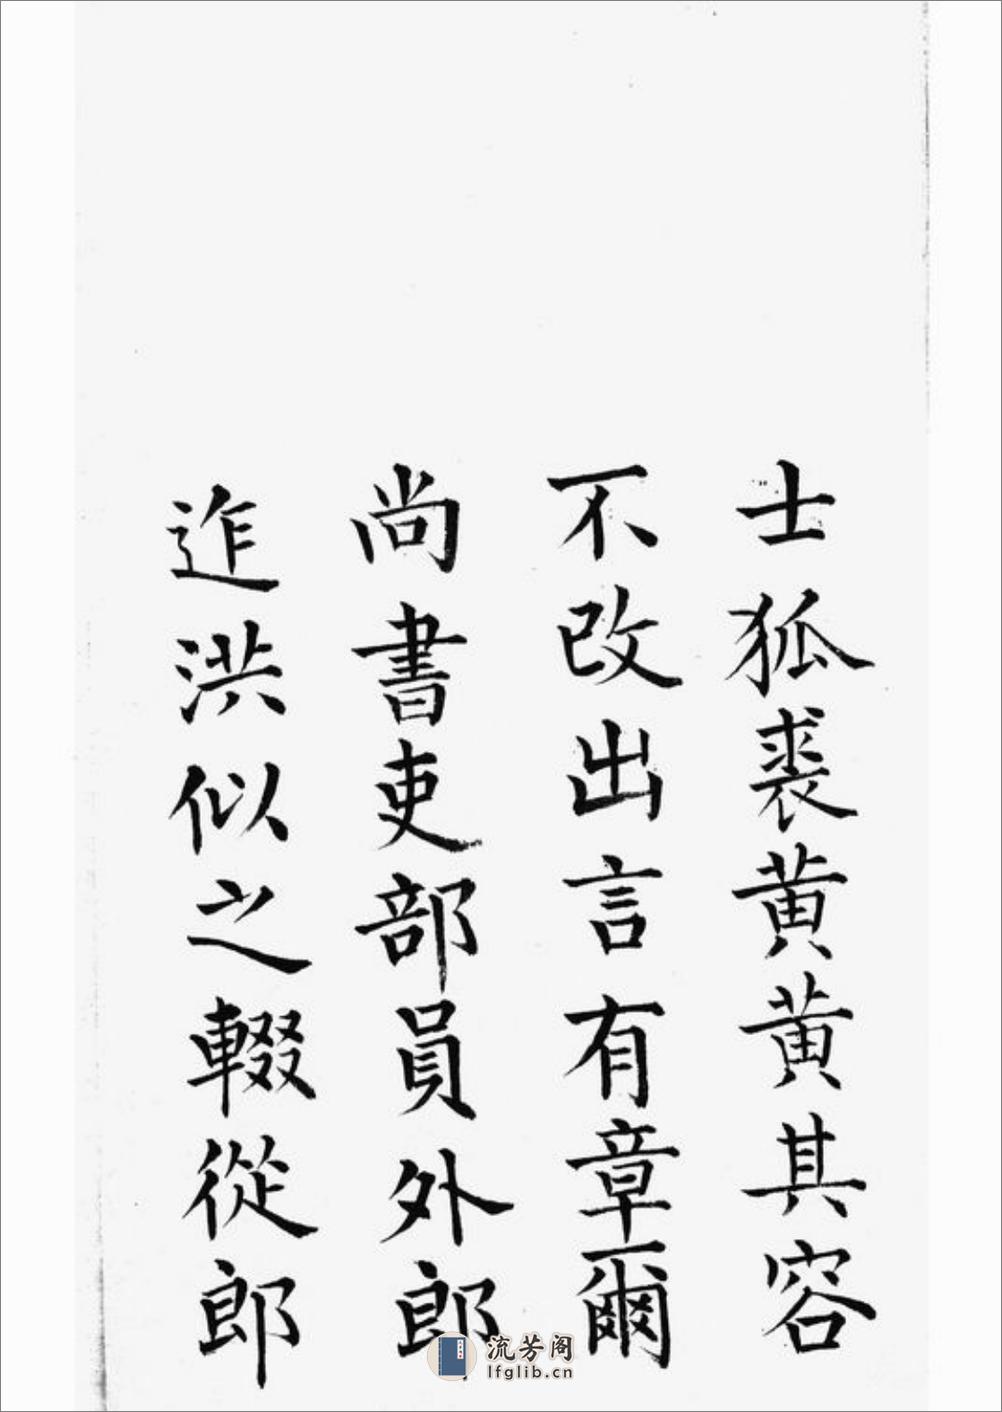 士狐裘黄黄其容
不改出言有章爾
尚書吏部員外郎
迮洪似之輟從郎
流芳阁
lfglib.cn